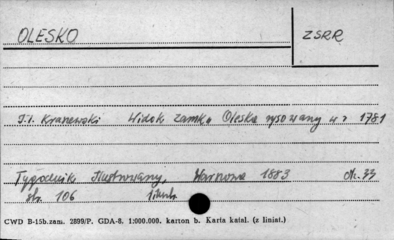 OLESKO
ZSRR
J.I. Kranewski Widok zamku Oleska rysowany w r 1781
Tygodnik Ilustrowany, Warszawa 1883 Nr. 33
str. 106
CWD B-15b.zam. 2899/P. GDA-8. 1:000.000. karton b. Karta katal. (z liniat.)